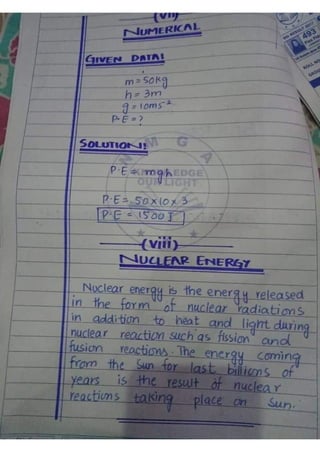 (vii)
NUMERICAL
GIVEN DATA:
m = 50kg
h = 3m
g = 10ms⁻²
P.E = ?
SOLUTION!!
NMGA
KNOWLEDGE
OUR LIGHT
P.E = mgh
P.E = 50x10x3
P.E = 1500 J
(viii)
NUCLEAR ENERGY
Nuclear energy is the energy released
in the form of nuclear radiations
in addition to heat and light during
nuclear reaction such as fission and
fusion reactions. The energy coming
from the Sun for last billions of
years is the result of nuclear
reactions taking place on Sun.
493